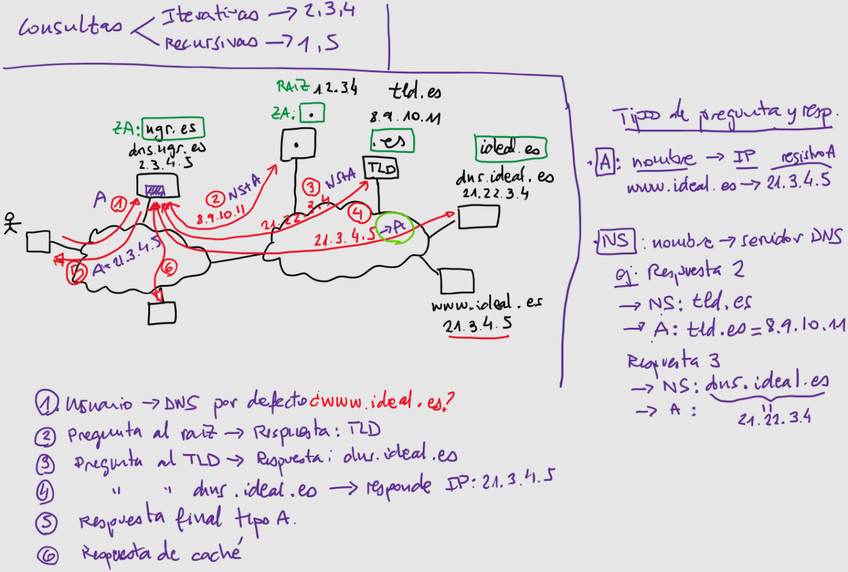 Consultas
Iterativas → 2,3,4
Recursivas → 1,5
RAIZ 1.2.3.4
ZA: .
.
tld.es
8.9.10.11
.es
TLD
ZA: ugr.es
dns.ugr.es
2.3.4.5
ideal.es
dns.ideal.es
21.22.3.4
A ①
② NS+A
8.9.10.11
③ NS+A
21.22.3.4
④
21.3.4.5 → A
⑤ A=21.3.4.5
⑥
www.ideal.es
21.3.4.5
Tipos de pregunta y resp.
· A : nombre → IP registro A
www.ideal.es → 21.3.4.5
· NS : nombre → servidor DNS
ej: Respuesta 2
→ NS: tld.es
→ A: tld.es = 8.9.10.11
Respuesta 3
→ NS: dns.ideal.es
→ A : 21.22.3.4
① Usuario → DNS por defecto ¿www.ideal.es?
② Pregunta al raiz → Respuesta: TLD
③ Pregunta al TLD → Respuesta: dns.ideal.es
④ " " dns.ideal.es → responde IP: 21.3.4.5
⑤ Respuesta final tipo A.
⑥ Respuesta de caché